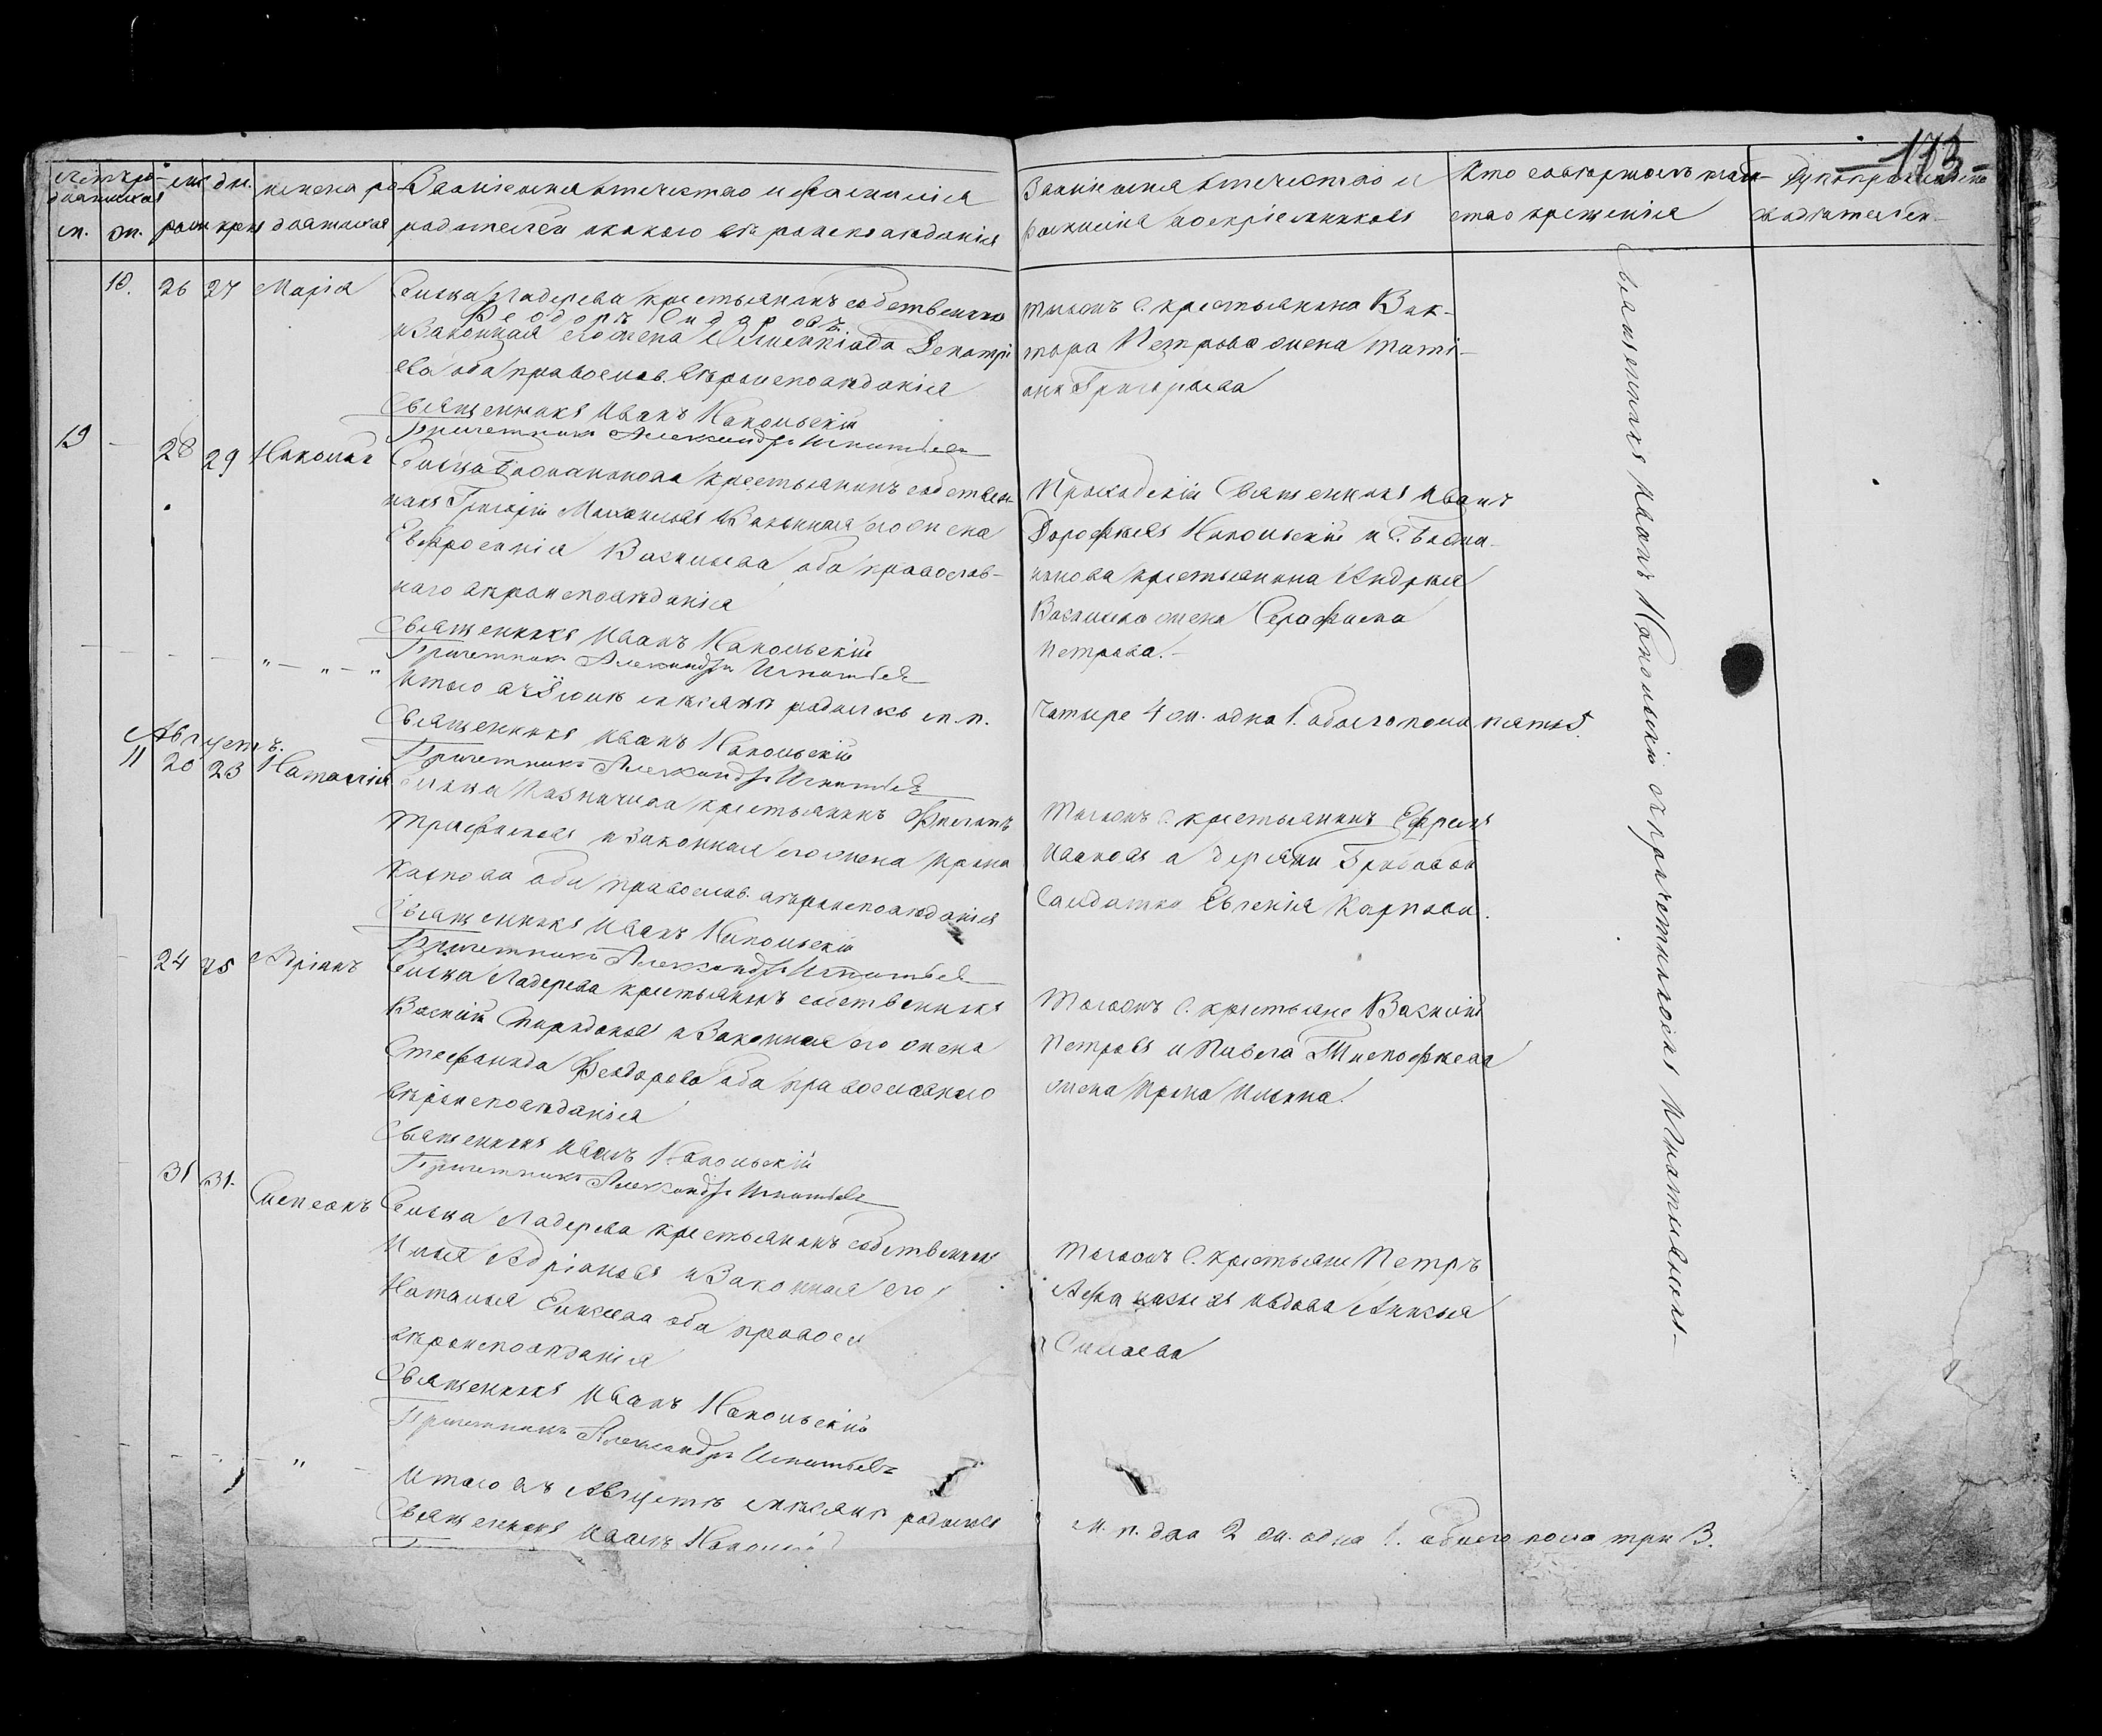 173
Счетъ ро-
дившихся
м. ж.
мѣс. дн.
рожд. крещ.
имена ро-
дившихся
Званіе имя отчество и фамилія
родителей и какого вѣроисповѣданія
Званіе имя отчество и
фамилія воспріемниковъ
Кто совершалъ таин-
ство крещенія
Рукоприкладство
свидѣтелей
10. 26 27 Марія
Сельца Ладерева крестьянинъ собственникъ
Ѳеодоръ Сидаровъ
и законная его жена Олимпіада Демитрі
ева оба православ. вѣроисповѣданія
Священникъ Иванъ Никольскій
Причетникъ Александръ Игнатьевъ
тогожъ с. крестьянина Вик-
тора Петрова жена Тати-
ана Григорьева
19 28 29 Николай
крестьянинъ собствен-
никъ Григорій Михайловъ и законная его жена
Евфросинія Васильева оба православ-
наго вѣроисповѣданія
Священникъ Иванъ Никольскій
Причетникъ Александръ Игнатьевъ
Приходскій Священникъ Иванъ
Дорофѣевъ Никольскій и с.
крестьянина Андрея
Васильева жена Серафима
Петрова.
Итого въ Іюлѣ мѣсяцѣ родилось м. п.
четыре 4 ж. одна 1. обоего пола пять 5.
Священникъ Иванъ Никольскій
Причетникъ Александръ Игнатьевъ
Августъ.
11 20 23 Наталія
крестьянинъ Филипъ
Трифоновъ и законная его жена Ирина
Карпова оба православ. вѣроисповѣданія
Священникъ Иванъ Никольскій
Причетникъ Александръ Игнатьевъ
тогожъ с. крестьянинъ Ефремъ
Ивановъ и деревни
Солдатка Евгенія Карпова.
24 25 Адріанъ
Сельца Ладерева крестьянинъ собственникъ
Василій Спиридоновъ и законная его жена
Стефанида Ѳеодорова оба православнаго
вѣроисповѣданія
Священникъ Иванъ Никольскій
Причетникъ Александръ Игнатьевъ
тогожъ с. крестьяне Василій
Петровъ и Павла Тимофѣева
жена Ирина Ильина.
31 31. Симеонъ
Сельца Ладерева крестьянинъ собственникъ
Илья Адріановъ и законная его
Наталья Елисеева оба правосл
вѣроисповѣданія
Священникъ Иванъ Никольскій
Причетникъ Александръ Игнатьевъ
тогожъ с. крестьяне Петръ
Афанасьевъ и вдова Анисья
Симаева
Итого въ Августѣ мѣсяцѣ родилось
м. п. два 2 ж. одна 1. обоего пола три 3.
Священникъ Иванъ Никольскій
Священникъ Иванъ Никольскій съ причетникомъ Игнатьевымъ